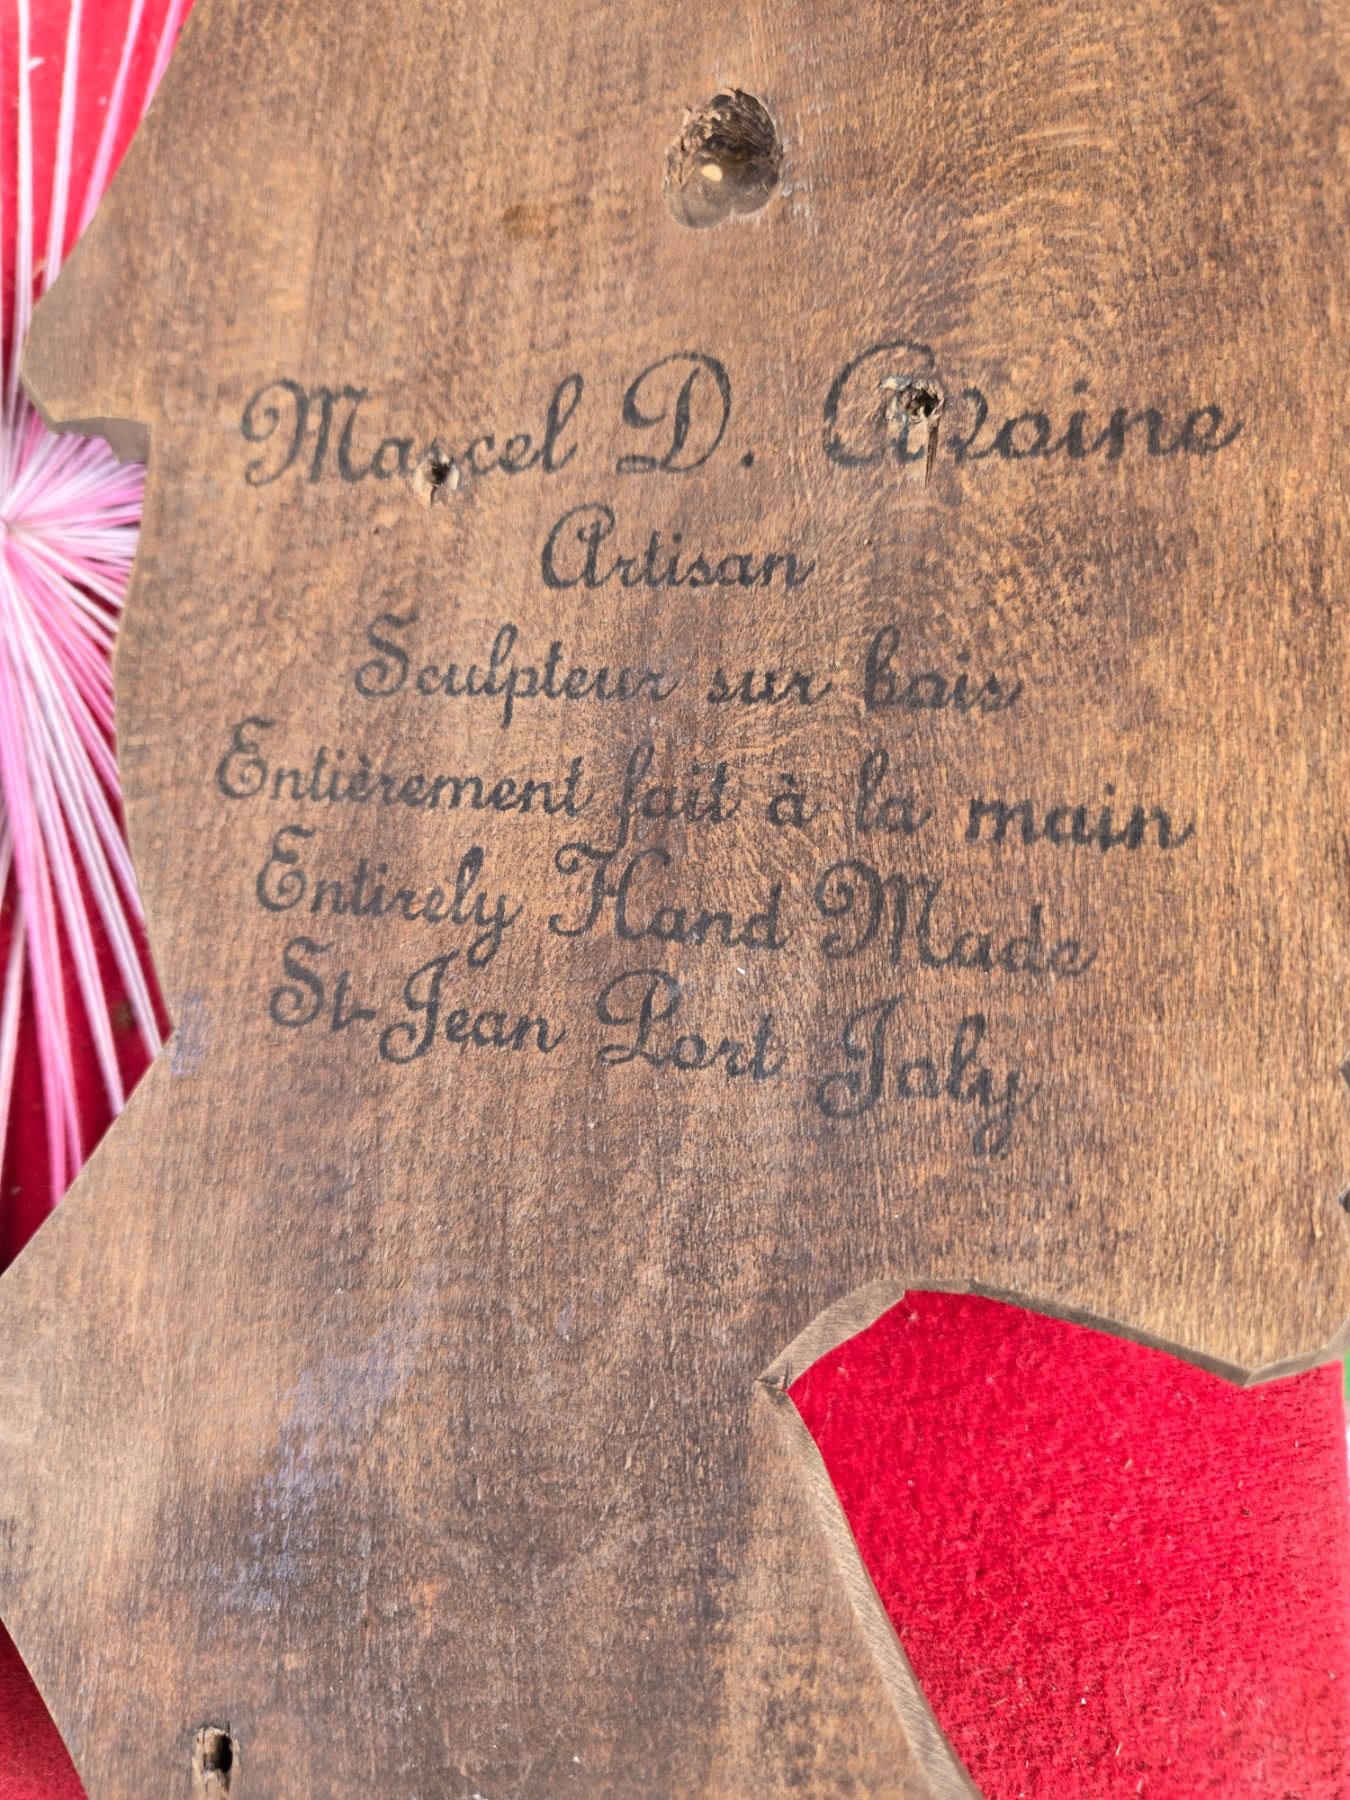 Marcel D. Avoine
Artisan
Sculpteur sur bois
Entièrement fait à la main
Entirely Hand Made
St-Jean Port Joly